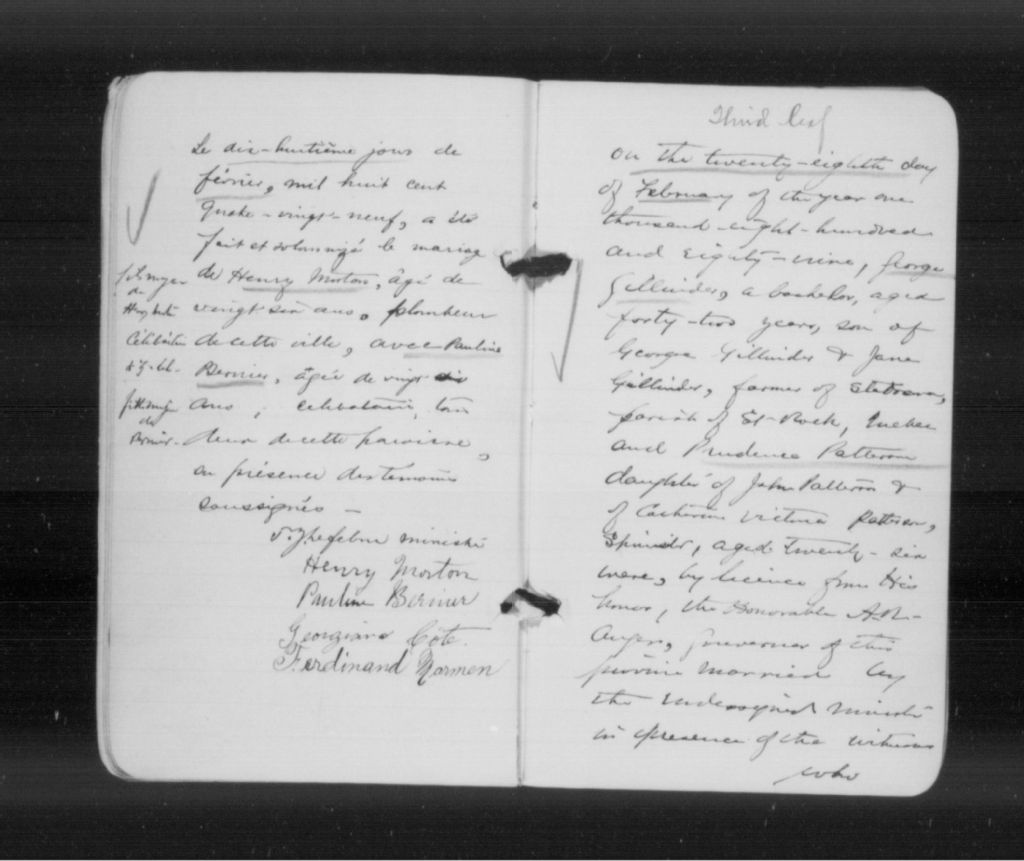 Le dix-huitième jour de
février, mil huit cent
quatre-vingt-neuf, a été
fait et solennizé le mariage
de Henry Morton, âgé de
vingt six ans, plombeur
de cette ville, avec Pauline
Bernier, âgée de vingt six
ans, célibataire, tous
deux de cette paroisse,
en présence des témoins
soussignés —
ministre
Henry Morton
Pauline Bernier
Georgiana Côté
Ferdinand Normen
de
célibataire
de
Bernier
Third leaf
On the twenty-eighth day
of February of the year one
thousand eight-hundred
and eighty-nine, George
Gillinder, a bachelor, aged
forty-two years, son of
George Gillinder & Jane
Gillinder, farmer of
parish of St-Roch, Quebec
and Prudence Patterson
daughter of John Patterson &
of Catherine Victoria Patterson,
Spinster, aged twenty-six
were, by licence from His
honor, the Honorable A.R.
Angers, governor of this
province married by
the undersigned minister
in presence of the witnesses
who